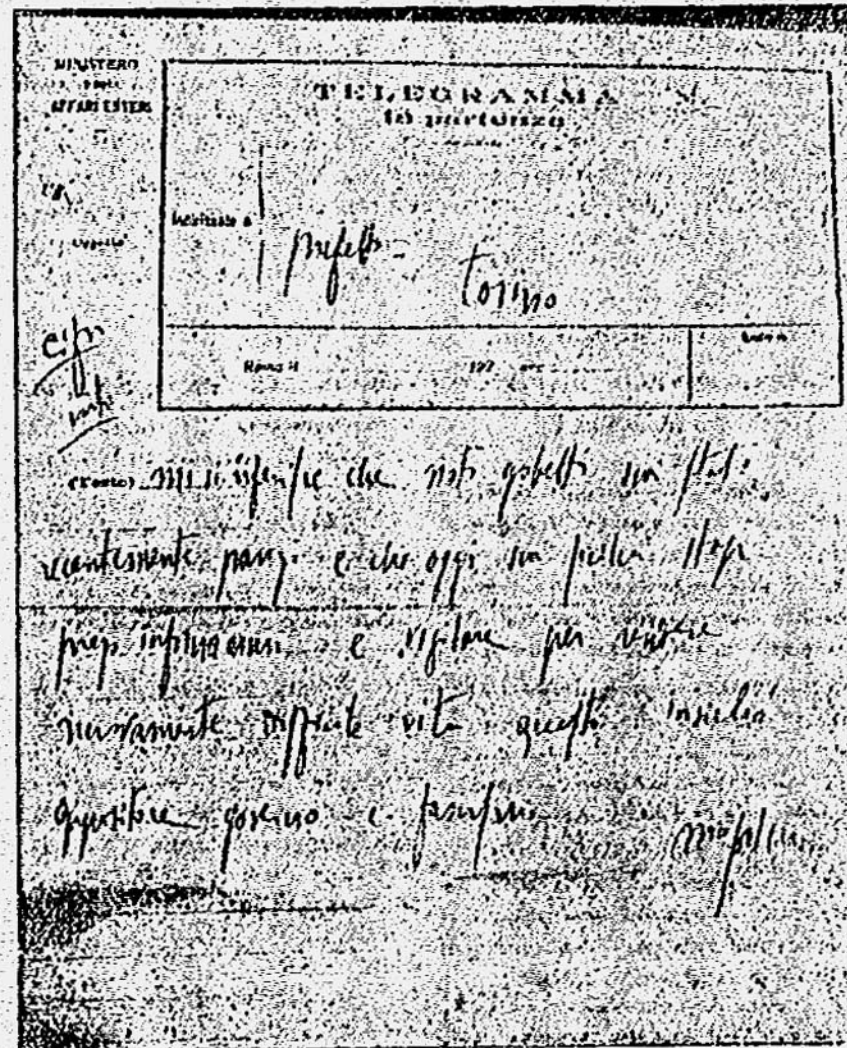 MINISTERO
DEGLI
AFFARI ESTERI
TELEGRAMMA
in partenza
Indirizzato a
prefetto - Torino
Roma, li 192 ore
cifra
(TESTO) Mi si riferisce che noto gobetti sia stato
recentemente parigi e che oggi sia sicilia stop
prego informarmi e vigilare per rendere
nuovamente difficile vita questo insulso
oppositore governo e fascismo
Mussolini